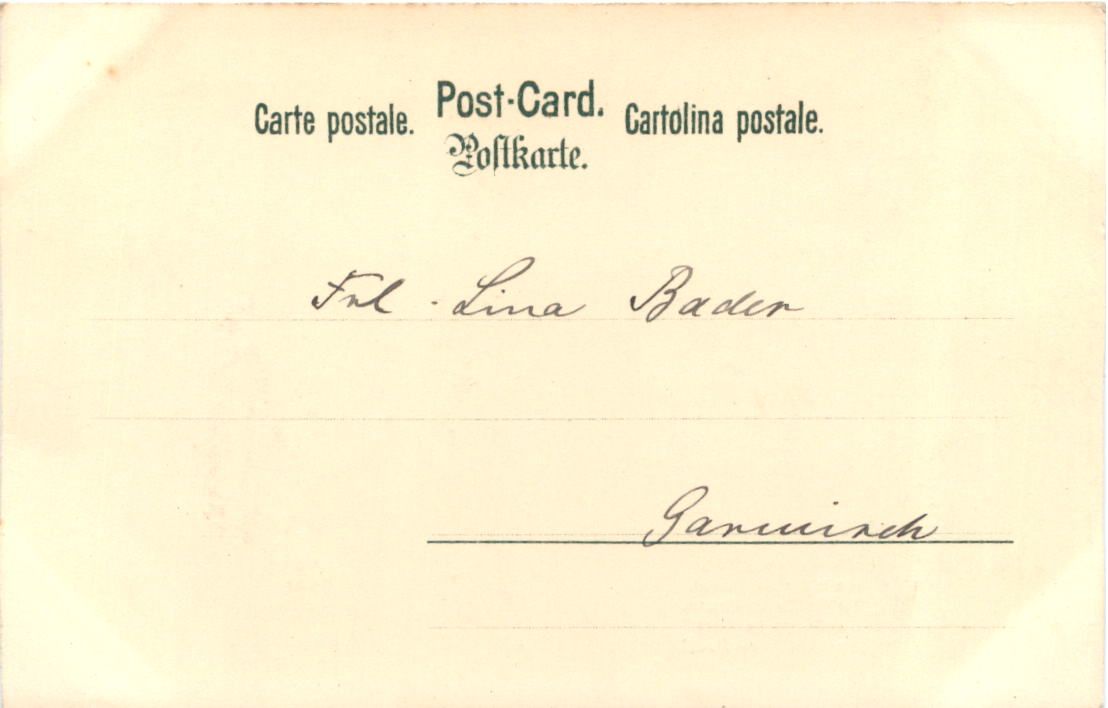 Carte postale. Post-Card. Cartolina postale.
Postkarte.
Frl. Lina Bader
Garmisch